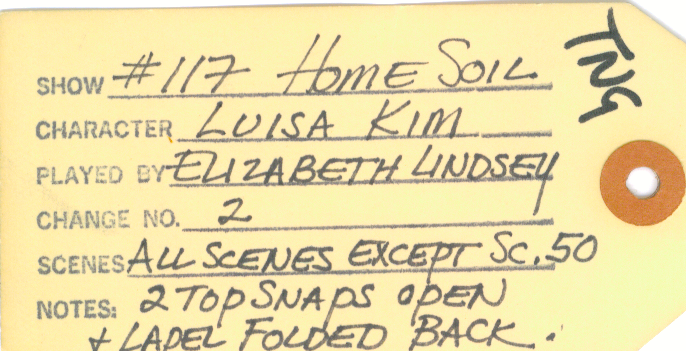 SHOW #117 HOME SOIL
TNG
CHARACTER LUISA KIM
PLAYED BY ELIZABETH LINDSEY
CHANGE NO. 2
SCENES ALL SCENES EXCEPT SC. 50
NOTES: 2 TOP SNAPS OPEN
+ LAPEL FOLDED BACK.